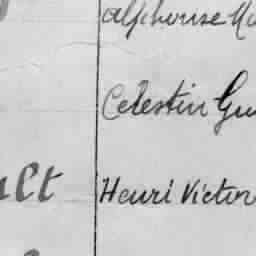 Alphonse
Celestin Gu
ult Henri Victor